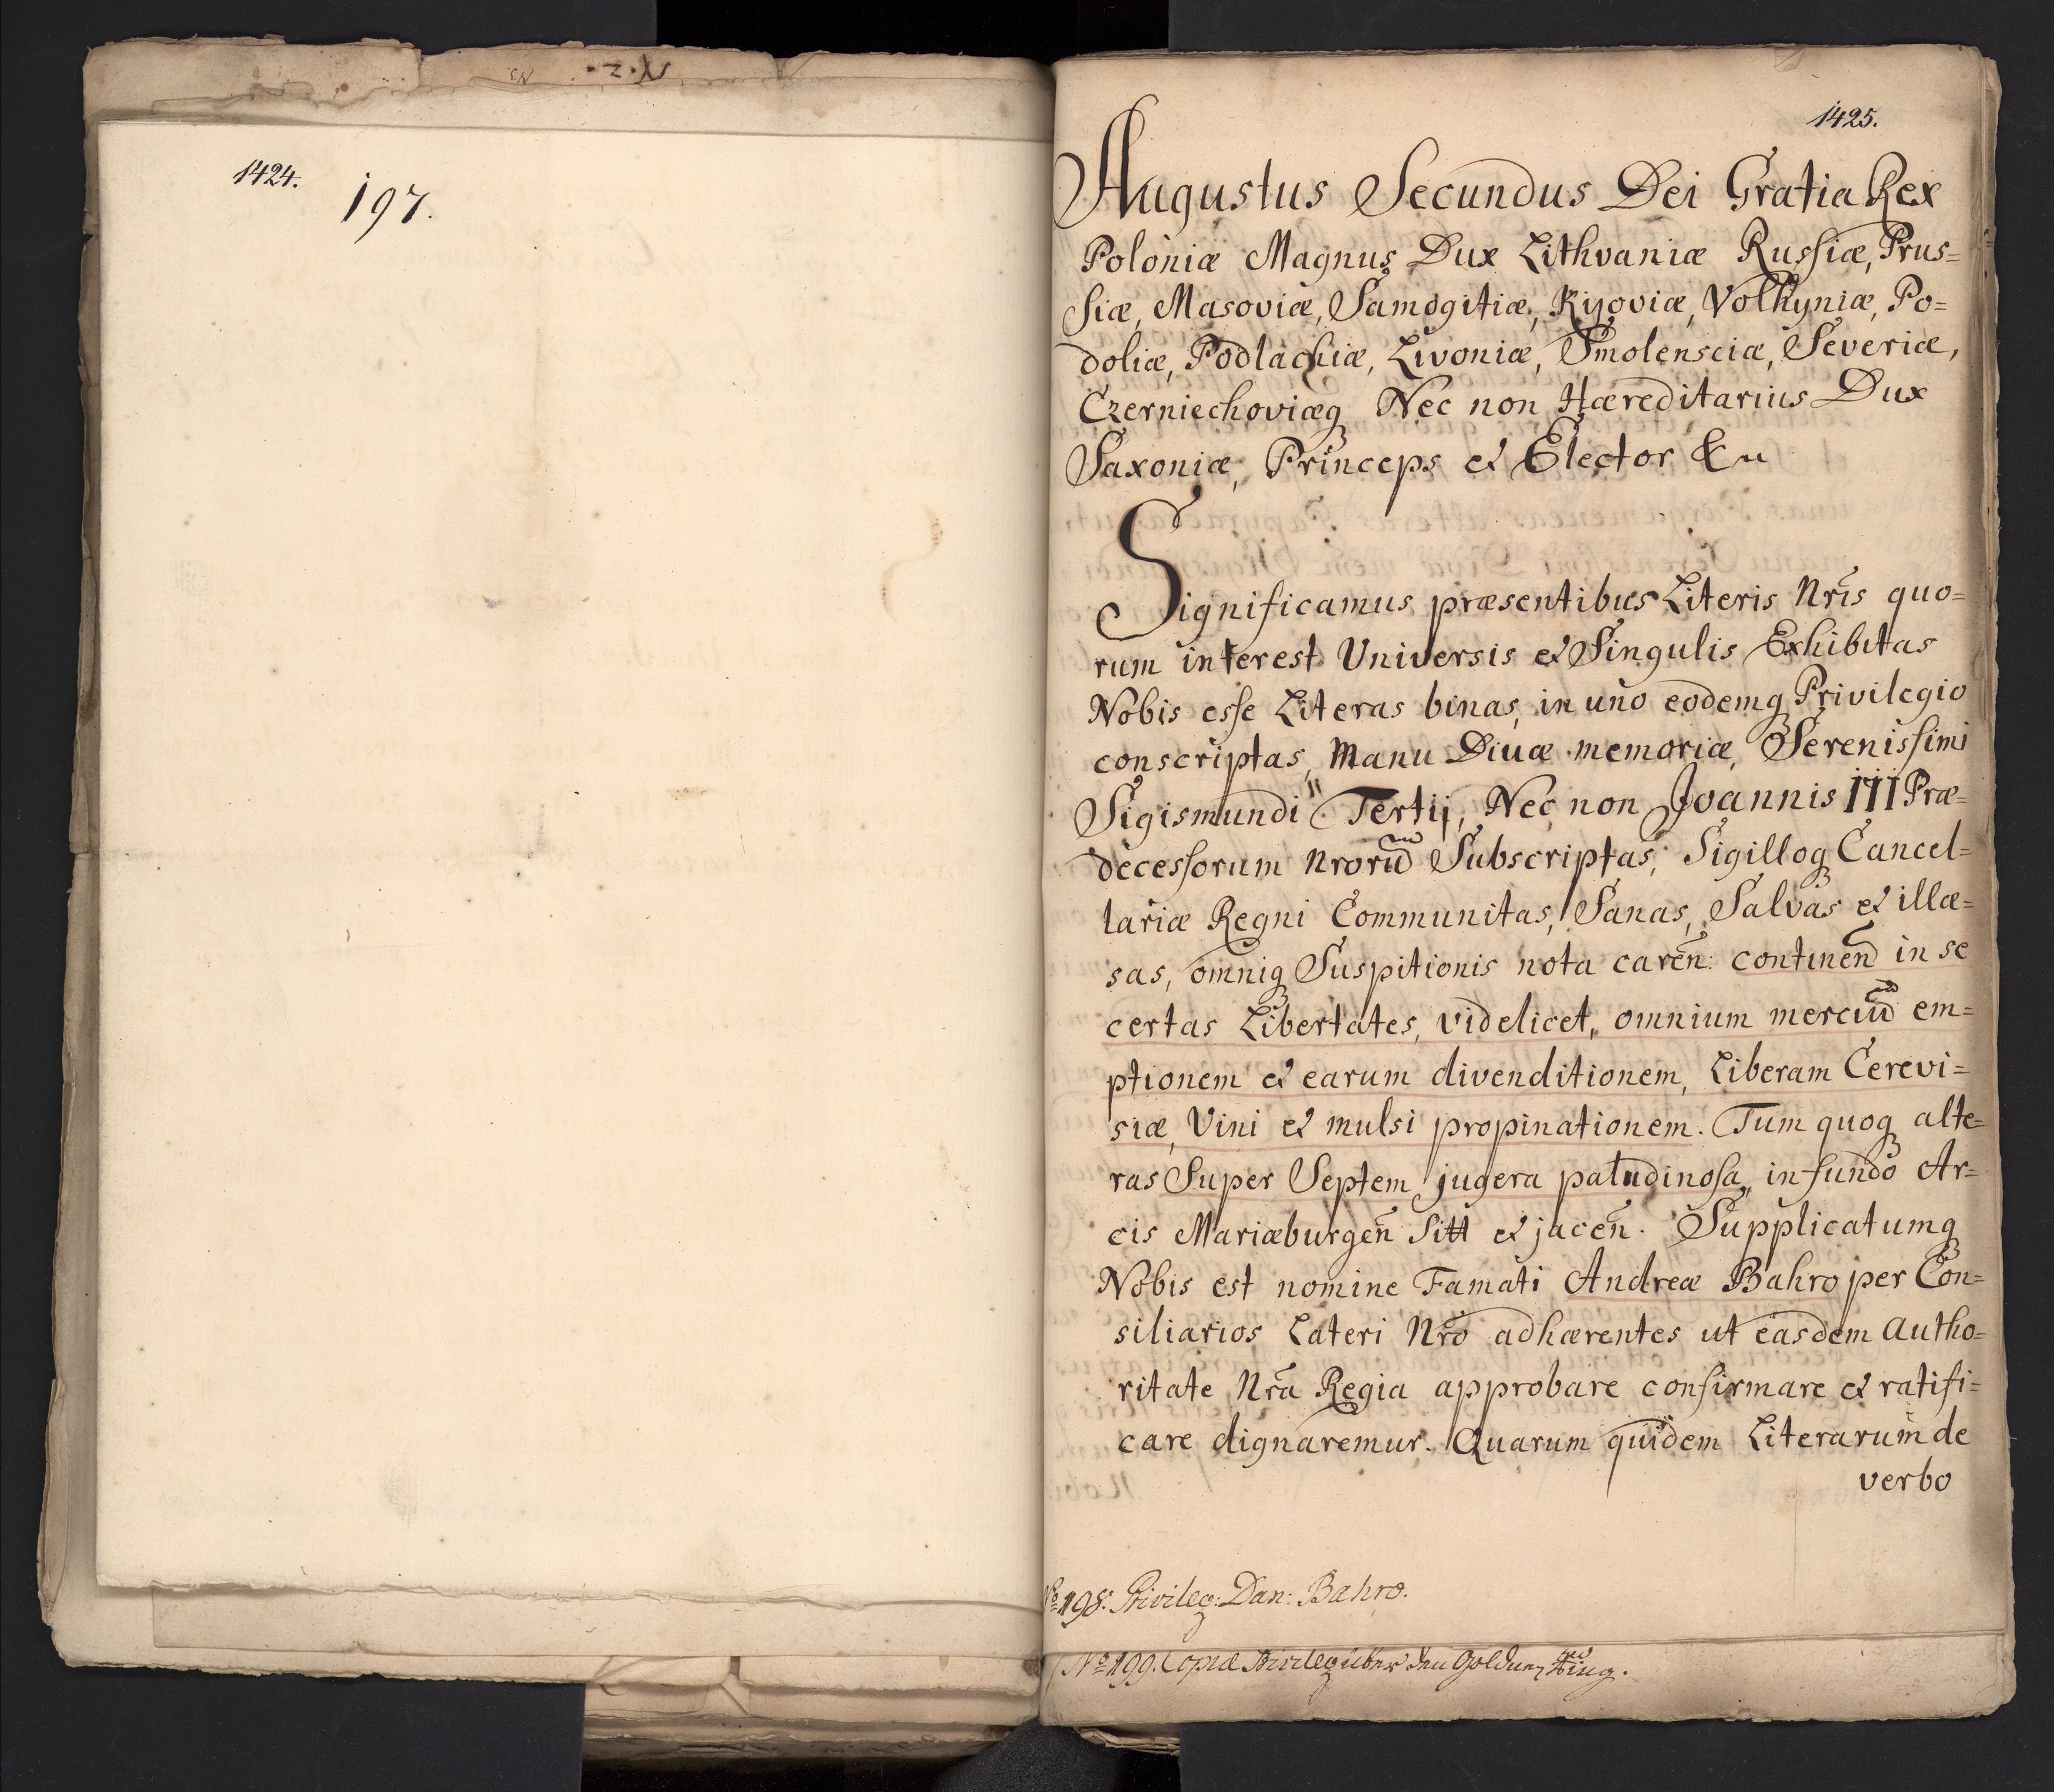 1424.
197.
1425.
Augustus Secundus Dei Gratia Rex
Poloniæ Magnus Dux Lithvaniæ Russiæ, Prus=
siæ, Masoviæ, Samogitiæ, Kijoviæ, Volhyniæ, Po=
doliæ, Podlachiæ, Livoniæ, Smolensciæ, Severiæ,
Czerniechoviæq Nec non Hæreditarius Dux
Saxoniæ, Princeps et Elector &
Significamus præsentibus Literis Nr̃is quo=
rum interest Universis et Singulis Exhibitas
Nobis esse Literas binas, in uno eodemq Privilegio
conscriptas, Manu Divæ memoriæ, Serenissimi
Sigismundi Tertij, Nec non Joannis III Præ=
decessorum nrorũ Subscriptas, Sigilloq Cancel=
lariæ Regni Communitas, Sanas, Salvas et illæ=
sas, omniq Suspitionis nota careñ: contineñ in se
certas Libertates, videlicet, omnium merciũ em=
ptionem et earum divenditionem, Liberam Cerevi=
siæ, Vini et mulsi propinationem. Tum quoq alte=
ras Super Septem jugera paludinosa, in fundo Ar=
cis Mariæburgeñ Sitt et jaceñ. Supplicatumq
Nobis est nomine Famati Andreæ Bahro per Con=
siliarios Lateri Nr̃o adhærentes ut easdem autho=
ritate Nr̃a Regia approbare confirmare et ratifi=
care dignaremur. Quarum quidem Literarum de
verbo
No 198. Privileg: Dan: Bahro.
No 199. Copiæ Privileg über den Goldnen Ring.